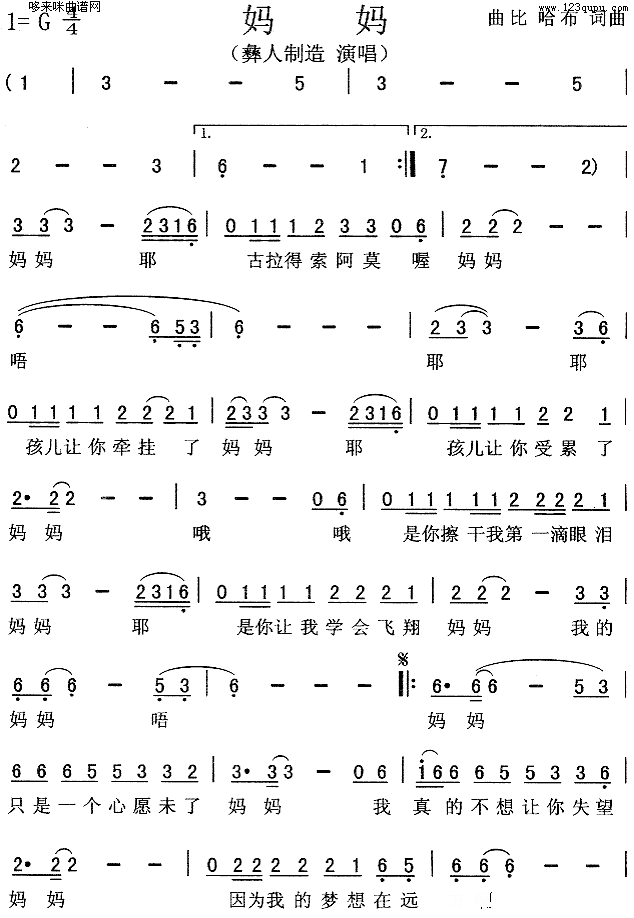 哆来咪曲谱网
www.123qupu.com
1= G 4/4
妈 妈
曲比 哈布 词曲
（彝人制造 演唱）
( 1 | 3 - - 5 | 3 - - 5 |
2 - - 3 | 1. 6 - - 1 :| 2. 7 - - 2) |
3 3 3 - 2316 | 0 11 1 2 3 3 0 6 | 2 2 2 - - |
妈妈 耶 古拉得索阿莫 喔 妈妈
6 - - 6 53 | 6 - - - | 2 3 3 - 3 6 |
唔 耶 耶
0 11 1 1 2 2 2 1 | 23 3 3 - 2316 | 0 11 1 1 2 2 1 |
孩儿让你牵挂 了 妈妈 耶 孩儿让你受累了
2· 2 2 - - | 3 - - 0 6 | 0 11 1 11 2 22 2 1 |
妈 妈 哦 哦 是你擦干我第一滴眼泪
3 3 3 - 2316 | 0 11 1 1 2 2 2 1 | 2 2 2 - 3 3 |
妈妈 耶 是你让我学会飞翔 妈妈 我的
6 6 6 - 5 3 | 6 - - - |: 6· 6 6 - 5 3 |
妈妈 唔 妈 妈
6 6 6 5 5 3 3 2 | 3· 3 3 - 0 6 | i6 6 6 5 3 3 6 |
只是一个心愿未了 妈 妈 我 真的不想让你失望
2· 2 2 - - | 0 22 2 2 2 1 6 5 | 6 6 6 - - |
妈 妈 因为我的梦想在远